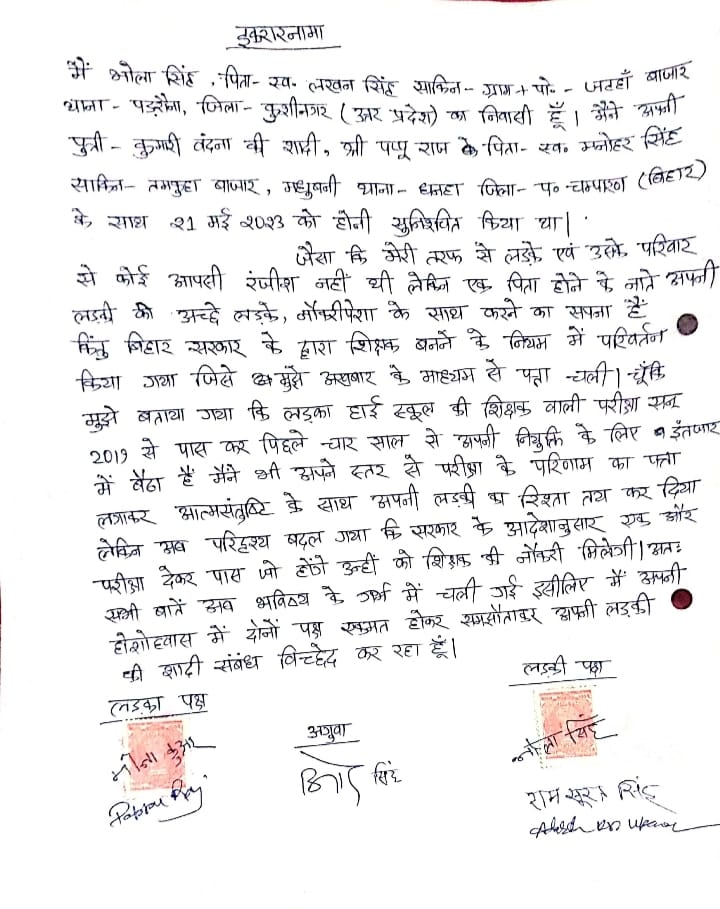 इकरारनामा
मैं भोला सिंह, पिता- स्व. लखन सिंह साकिन- ग्राम+पो.- जटहाँ बाजार
थाना- पडरौना, जिला- कुशीनगर (उत्तर प्रदेश) का निवासी हूँ। मैंने अपनी
पुत्री- कुमारी वंदना की शादी, श्री पप्पू राज के पिता- स्व. मनोहर सिंह
साकिन- तमकुहा बाजार, मधुबनी थाना- धनहा जिला- प. चम्पारण (बिहार)
के साथ 21 मई 2023 को होनी सुनिश्चित किया था।
जैसा कि मेरी तरफ से लड़के एवं उसके परिवार
से कोई आपसी रंजीश नहीं थी लेकिन एक पिता होने के नाते अपनी
लड़की की अच्छे लड़के, नौकरीपेशा के साथ करने का सपना है
किंतु बिहार सरकार के द्वारा शिक्षक बनने के नियम में परिवर्तन
किया गया जिसे मुझे अखबार के माध्यम से पता चली। चूँकि
मुझे बताया गया कि लड़का हाई स्कूल की शिक्षक वाली परीक्षा सन्
2019 से पास कर पिछले चार साल से अपनी नियुक्ति के लिए इंतजार
में बैठा हैं मैंने भी अपने स्तर से परीक्षा के परिणाम का पता
लगाकर आत्मसंतुष्टि के साथ अपनी लड़की का रिश्ता तय कर दिया
लेकिन अब परिदृश्य बदल गया कि सरकार के आदेशानुसार एक और
परीक्षा देकर पास जो होंगे उन्हीं को शिक्षक की नौकरी मिलेगी। अतः
सभी बातें अब भविष्य के गर्भ में चली गई इसीलिए मैं अपनी
होशोहवास में दोनों पक्ष एकमत होकर समझौताकर अपनी लड़की
की शादी संबंध विच्छेद कर रहा हूँ।
लड़का पक्ष
अगुवा
लड़की पक्ष
सिंह
भोला सिंह
राम सूरत सिंह